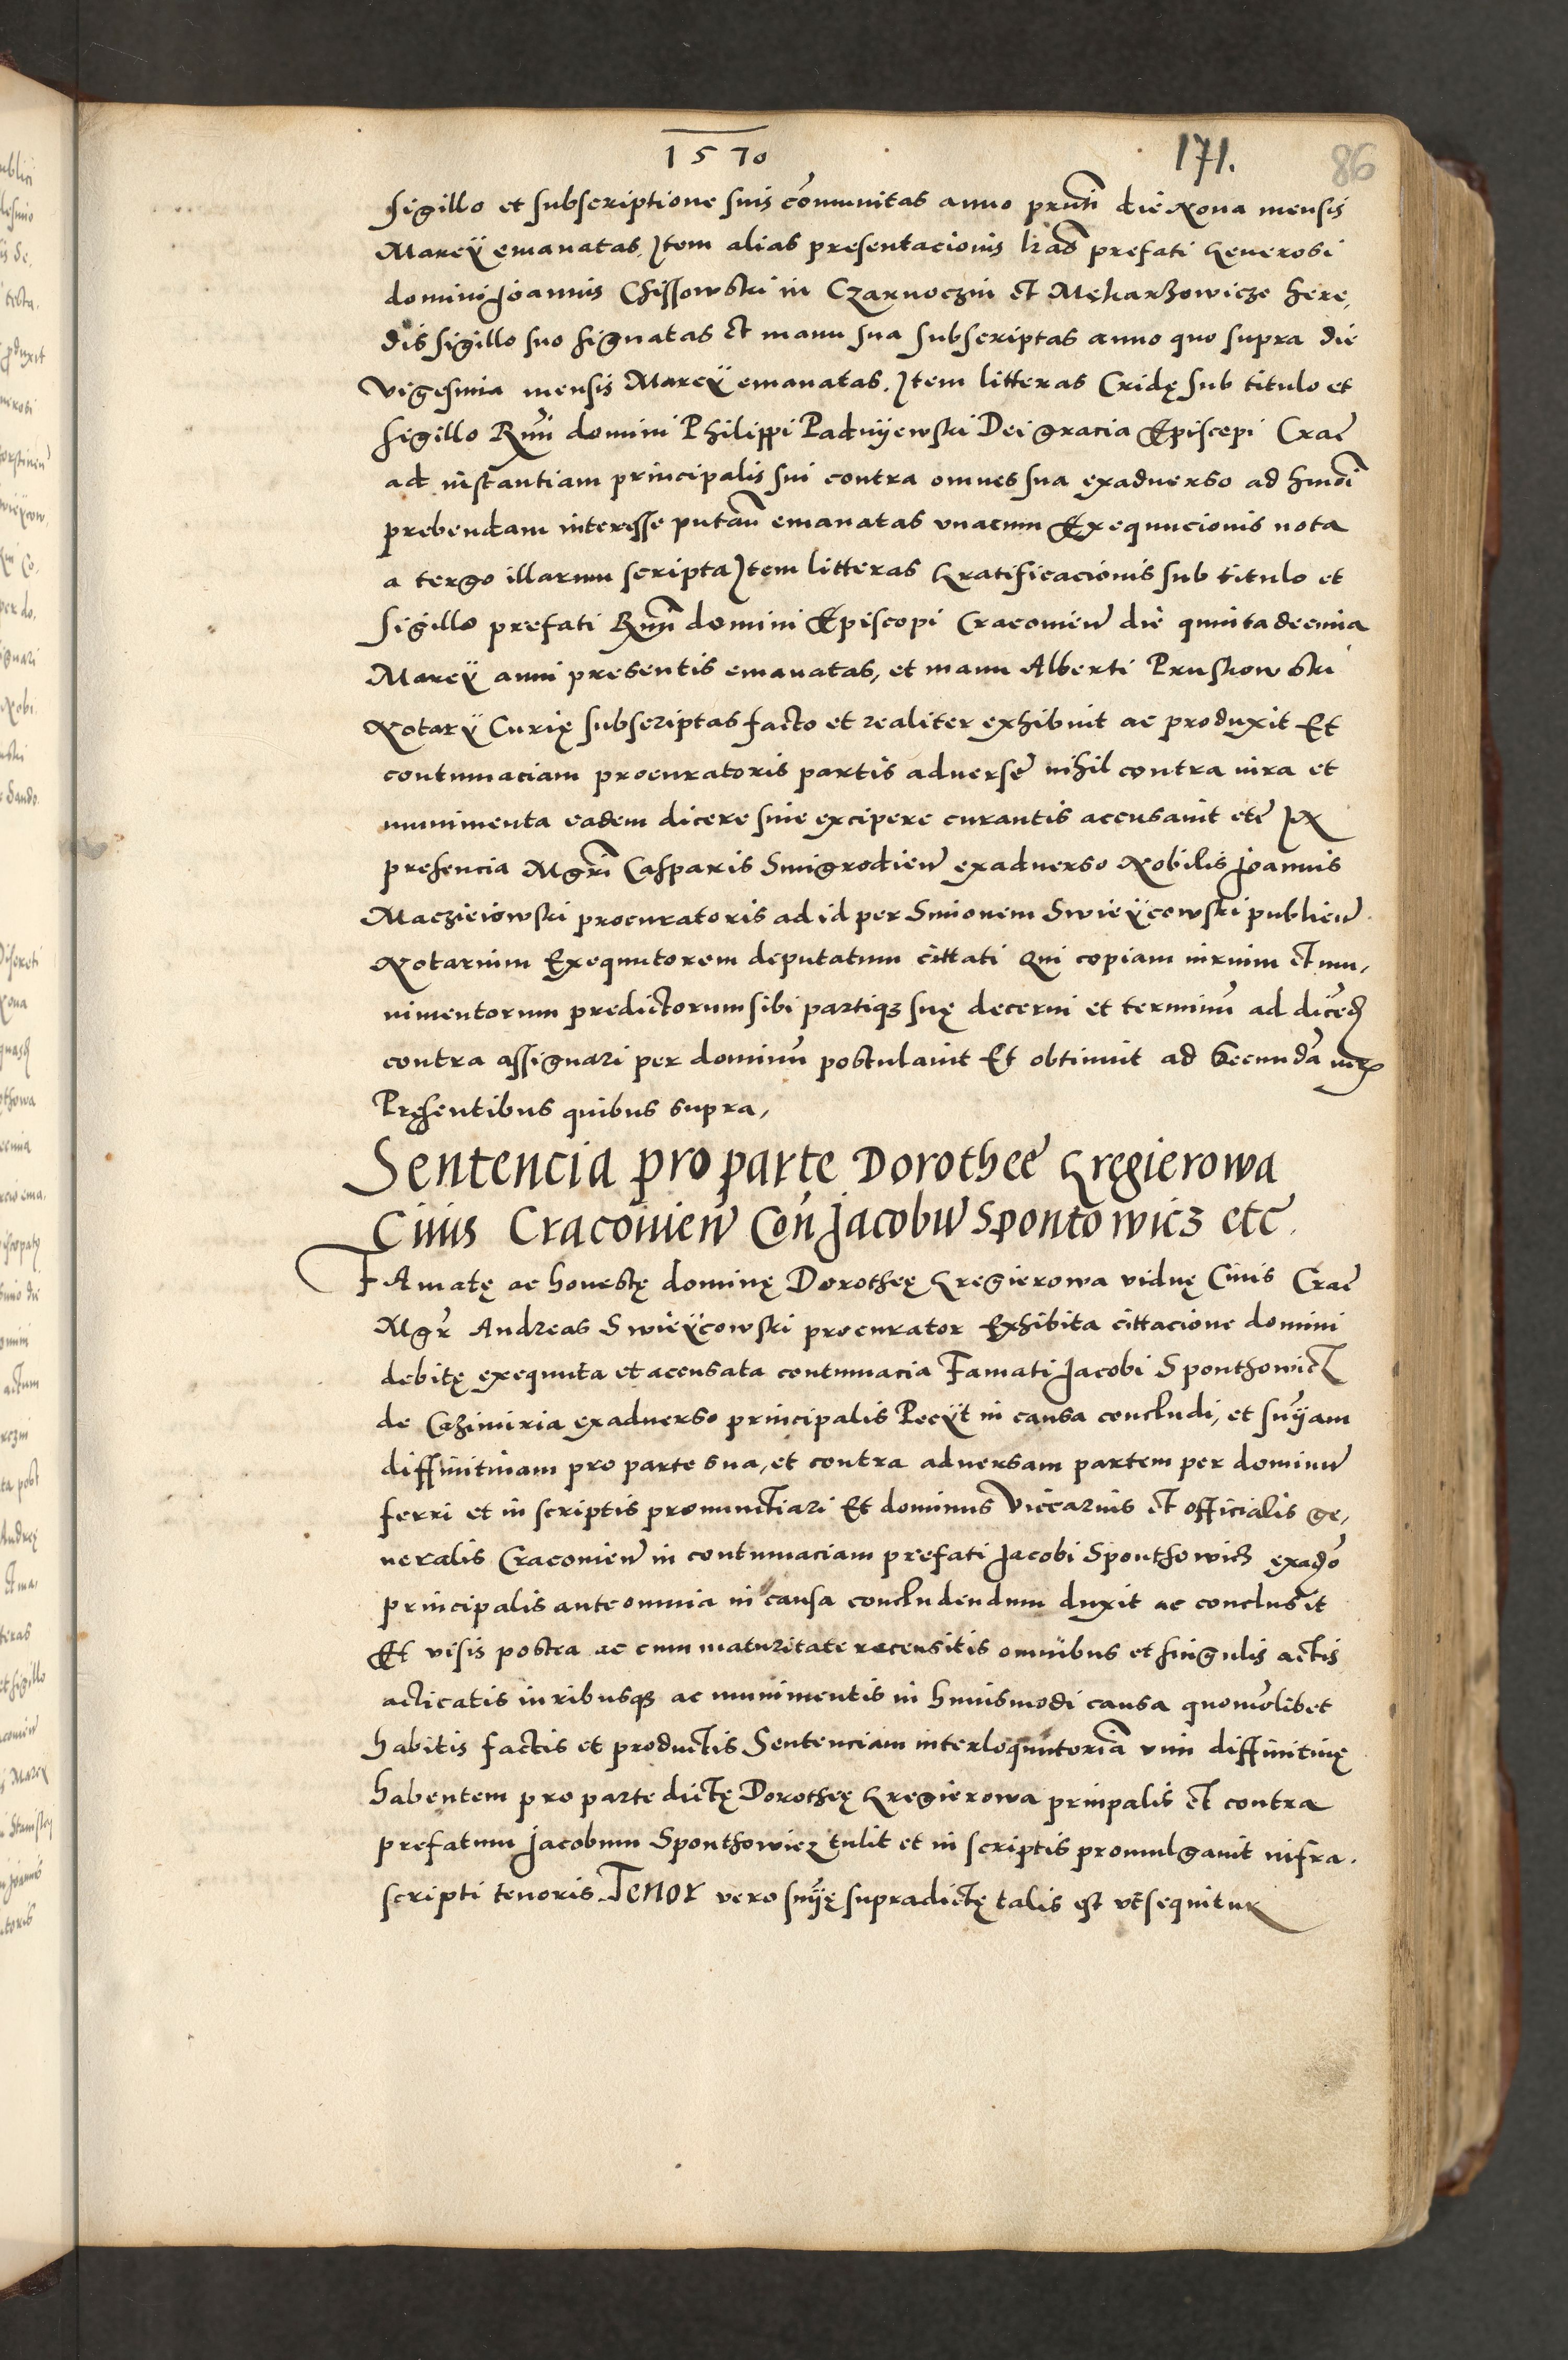 1570
171. 86
sigillo et subscriptione suis cõmunitas anno prñti die Nona mensis
Marcÿ emanatas. Item alias presentacionis lras prefati Generosi
domini Joannis Chissowski in Czarnoczin et Mękarzowicze here,
dis sigillo suo signatas et manu sua subscriptas anno quo supra die
vigesima mensis Marcÿ emanatas. Item litteras Cridę sub titulo et
sigillo Rmi domini Philippi Padnijewski Dei gracia Episcopi Crac̃
ad instantiam principalis sui contra omnes sua exaduerso ad hmõi
prebendam interesse putañ emanatas vnacum Exequucionis nota
a tergo illarum scripta Item litteras Gratificacionis sub titulo et
sigillo prefati Rmi domini Episcopi Cracouieñ die quintadecima
Marcÿ anni presentis emanatas, et manu Alberti Pruskowski
Notarÿ Curię subscriptas facto et realiter exhibuit ac produxit Et
contumaciam procuratoris partis aduersę nihil contra iura et
munimenta eadem dicere siue excipere curantis accusauit etc̃ IN
presencia Mgri Casparis Smigrodieñ exaduerso Nobilis Joannis
Macziejowski procuratoris ad id per Simonem Swieÿcowski publicũ
Notarium Exequutorem deputatum cittati Qui copiam iurium et mu,
nimentorum predictorum sibi partiqȝ suę decerni et terminũ ad dicẽd
contra assignari per dominũ postulauit Et obtinuit ad Secundã iurᷣ
Pręsentibus quibus supra,
Sentencia pro parte Dorotheę Gregierowa
Ciuis Cracouieñ Coñ Jacobũ Spontowicz etc̃.
FAmatę ac honestę dominę Dorotheę Gregierowa viduę Ciuis Crac̃
Mgr̃ Andreas Swieÿcowski procurator Exhibita cittacione domini
debitę exequuta et accusata contumacia Famati Jacobi Sponthowicz
de Cazimiria exaduerso principalis Pecÿt in causa concludi, et sñÿam
diffinitiuam pro parte sua, et contra aduersam partem per dominũ
ferri et in scriptis pronunctiari Et dominus Viccarius et officialis ge,
neralis Cracouieñ in contumaciam prefati Jacobi Sponthowicz exadõ
principalis ante omnia in causa concludendum duxit ac conclusit
Et visis postea ac cum maturitate recensitis omnibus et singulis actis
acticatis iuribusqȝ ac munimentis in huiusmodi causa quomõlibet
habitis factis et productis Sentenciam interloquutoriã vim diffinitiuę
habentem pro parte dictę Dorotheę Gregierowa prinpalis et contra
prefatum Jacobum Sponthowicz tulit et in scriptis promulgauit infra.
scripti tenoris Tenor vero sñÿę supradictę talis est vt sequitur